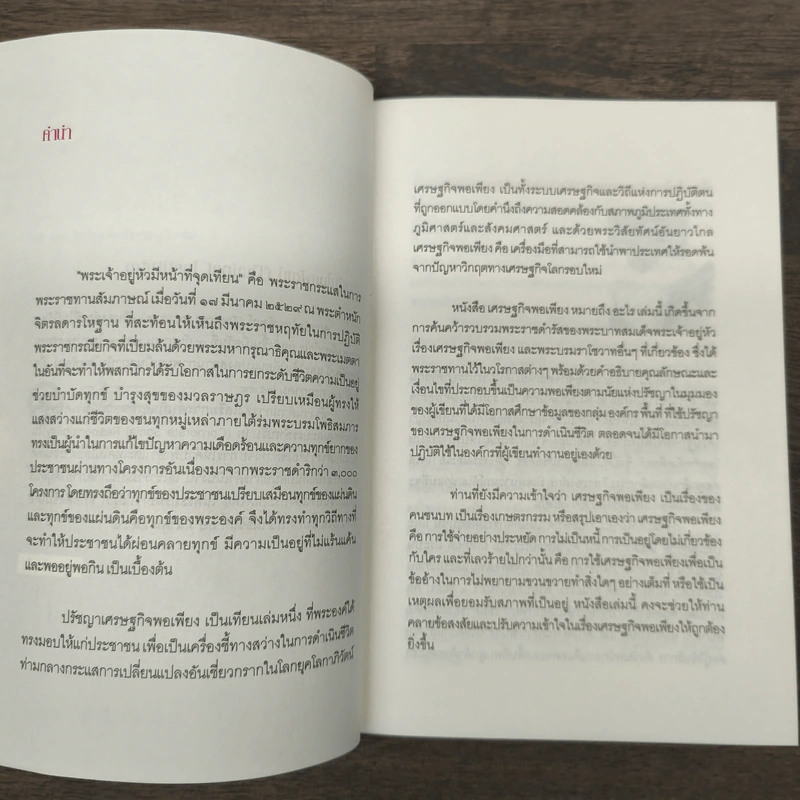 คำนำ
"พระเจ้าอยู่หัวมีหน้าที่จุดเทียน" คือ พระราชกระแสในการ
พระราชทานสัมภาษณ์ เมื่อวันที่ ๑๗ มีนาคม ๒๕๒๙ ณ พระตำหนัก
จิตรลดารโหฐาน ที่สะท้อนให้เห็นถึงพระราชหฤทัยในการปฏิบัติ
พระราชกรณียกิจที่เปี่ยมล้นด้วยพระมหากรุณาธิคุณและพระเมตตา
ในอันที่จะทำให้พสกนิกรได้รับโอกาสในการยกระดับชีวิตความเป็นอยู่
ช่วยบำบัดทุกข์ บำรุงสุขของมวลราษฎร เปรียบเหมือนผู้ทรงให้
แสงสว่างแก่ชีวิตของชนทุกหมู่เหล่าภายใต้ร่มพระบรมโพธิสมภาร
ทรงเป็นผู้นำในการแก้ไขปัญหาความเดือดร้อนและความทุกข์ยากของ
ประชาชนผ่านทางโครงการอันเนื่องมาจากพระราชดำริกว่า ๓,๐๐๐
โครงการ โดยทรงถือว่าทุกข์ของประชาชนเปรียบเสมือนทุกข์ของแผ่นดิน
และทุกข์ของแผ่นดินคือทุกข์ของพระองค์ จึงได้ทรงทำทุกวิถีทางที่
จะทำให้ประชาชนได้ผ่อนคลายทุกข์ มีความเป็นอยู่ที่ไม่แร้นแค้น
และพออยู่พอกิน เป็นเบื้องต้น
ปรัชญาเศรษฐกิจพอเพียง เป็นเทียนเล่มหนึ่ง ที่พระองค์ได้
ทรงมอบให้แก่ประชาชน เพื่อเป็นเครื่องชี้ทางสว่างในการดำเนินชีวิต
ท่ามกลางกระแสการเปลี่ยนแปลงอันเชี่ยวกรากในโลกยุคโลกาภิวัตน์
เศรษฐกิจพอเพียง เป็นทั้งระบบเศรษฐกิจและวิถีแห่งการปฏิบัติตน
ที่ถูกออกแบบโดยคำนึงถึงความสอดคล้องกับสภาพภูมิประเทศทั้งทาง
ภูมิศาสตร์และสังคมศาสตร์ และด้วยพระวิสัยทัศน์อันยาวไกล
เศรษฐกิจพอเพียง คือ เครื่องมือที่สามารถใช้นำพาประเทศให้รอดพ้น
จากปัญหาวิกฤตทางเศรษฐกิจโลกรอบใหม่
หนังสือ เศรษฐกิจพอเพียง หมายถึง อะไร เล่มนี้ เกิดขึ้นจาก
การค้นคว้ารวบรวมพระราชดำรัสของพระบาทสมเด็จพระเจ้าอยู่หัว
เรื่องเศรษฐกิจพอเพียง และพระบรมราโชวาทอื่นๆ ที่เกี่ยวข้อง ซึ่งได้
พระราชทานไว้ในวโรกาสต่างๆ พร้อมด้วยคำอธิบายคุณลักษณะและ
เงื่อนไขที่ประกอบขึ้นเป็นความพอเพียงตามนัยแห่งปรัชญาในมุมมอง
ของผู้เขียนที่ได้มีโอกาสศึกษาข้อมูลของกลุ่ม องค์กร พื้นที่ ที่ใช้ปรัชญา
ของเศรษฐกิจพอเพียงในการดำเนินชีวิต ตลอดจนได้มีโอกาสนำมา
ปฏิบัติใช้ในองค์กรที่ผู้เขียนทำงานอยู่เองด้วย
ท่านที่ยังมีความเข้าใจว่า เศรษฐกิจพอเพียง เป็นเรื่องของ
คนชนบท เป็นเรื่องเกษตรกรรม หรือสรุปเอาเองว่า เศรษฐกิจพอเพียง
คือ การใช้จ่ายอย่างประหยัด การไม่เป็นหนี้ การเป็นอยู่โดยไม่เกี่ยวข้อง
กับใคร และที่เลวร้ายไปกว่านั้น คือ การใช้เศรษฐกิจพอเพียงเพื่อเป็น
ข้ออ้างในการไม่พยายามขวนขวายทำสิ่งใดๆ อย่างเต็มที่ หรือใช้เป็น
เหตุผลเพื่อยอมรับสภาพที่เป็นอยู่ หนังสือเล่มนี้ คงจะช่วยให้ท่าน
คลายข้อสงสัยและปรับความเข้าใจในเรื่องเศรษฐกิจพอเพียงให้ถูกต้อง
ยิ่งขึ้น